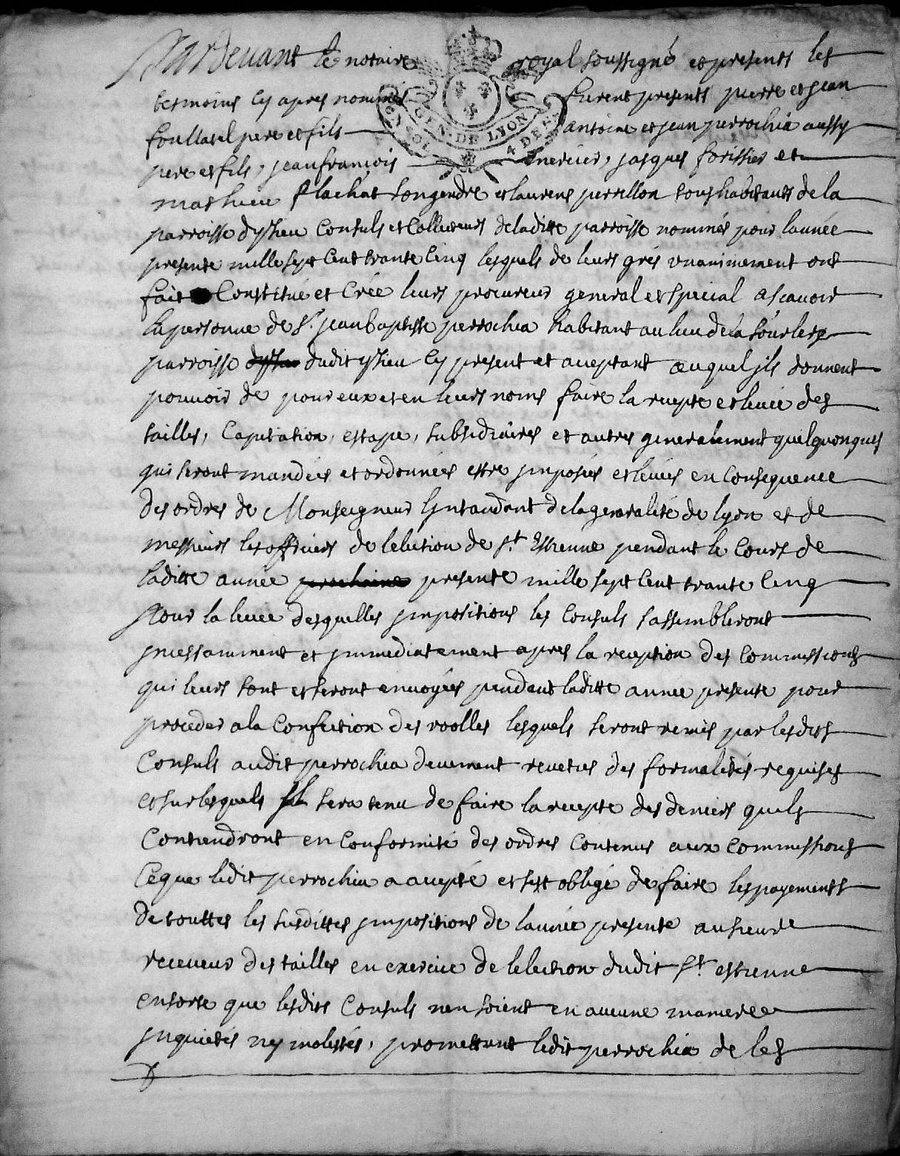 Pardevant le notaire royal soussigné et presents les
tesmoins cy apres nommé furent presents pierre et jean
foullasel pere et fils antoine et jean perrochia aussy
pere et fils, jean francois mercier, jasques forissier et
mathieu flachat son gendre et laurens perillon tous habitants de la
parroisse dyzieu Consuls et Collecteurs de laditte parroisse nommés pour lannée
presente mille sept Cent trante Cinq lesquels de leurs grés unanimement ont
fait Constitué et Créé leurs procureur general et special ascavoir
la personne de Sr. jean Baptiste perrochia habitant au lieu de la
parroisse dudit yzieu Cy present et aceptant auquel jls donnent
pouvoir de pour eux et en leurs noms faire la recepte et levée des
tailles, Capitation, estape, subsidiaires et autres generalement quelquonques
qui seront mandées et ordonnées estre jmposés et levées en consequence
des ordres de Monseigneur Lyntandant de la generalité de lyon et de
messieurs les officiers de lelection de St. Estienne pendant le Cours de
laditte année prochaine presente mille sept Cent trante Cinq
Pour la levée desquelles jmpositions les Consuls sassembleront
jncessamment et jmmediatement apres la reception des Commissions
qui leurs sont et seront envoyées pendant laditte année presente pour
proceder a la Confection des roolles lesquels seront remis par lesdits
Consuls audit perrochia deuement revetus des formalités requises
et sur lesquels jl sera tenu de faire la recepte des deniers quils
Contiendront en Conformité des ordres Contenus aux Commissions
Ceque ledit perrochia a accepté et sest obligé de faire les payements
de touttes les susdittes jmpositions de lannée presente au sieur
receveur des tailles en exercice de lelection dudit St. estienne
en sorte que lesdits Consuls nen soient en aucune maniere
jnquietés ny molestés, promettant ledit perrochia de les
GEN. DE LYON